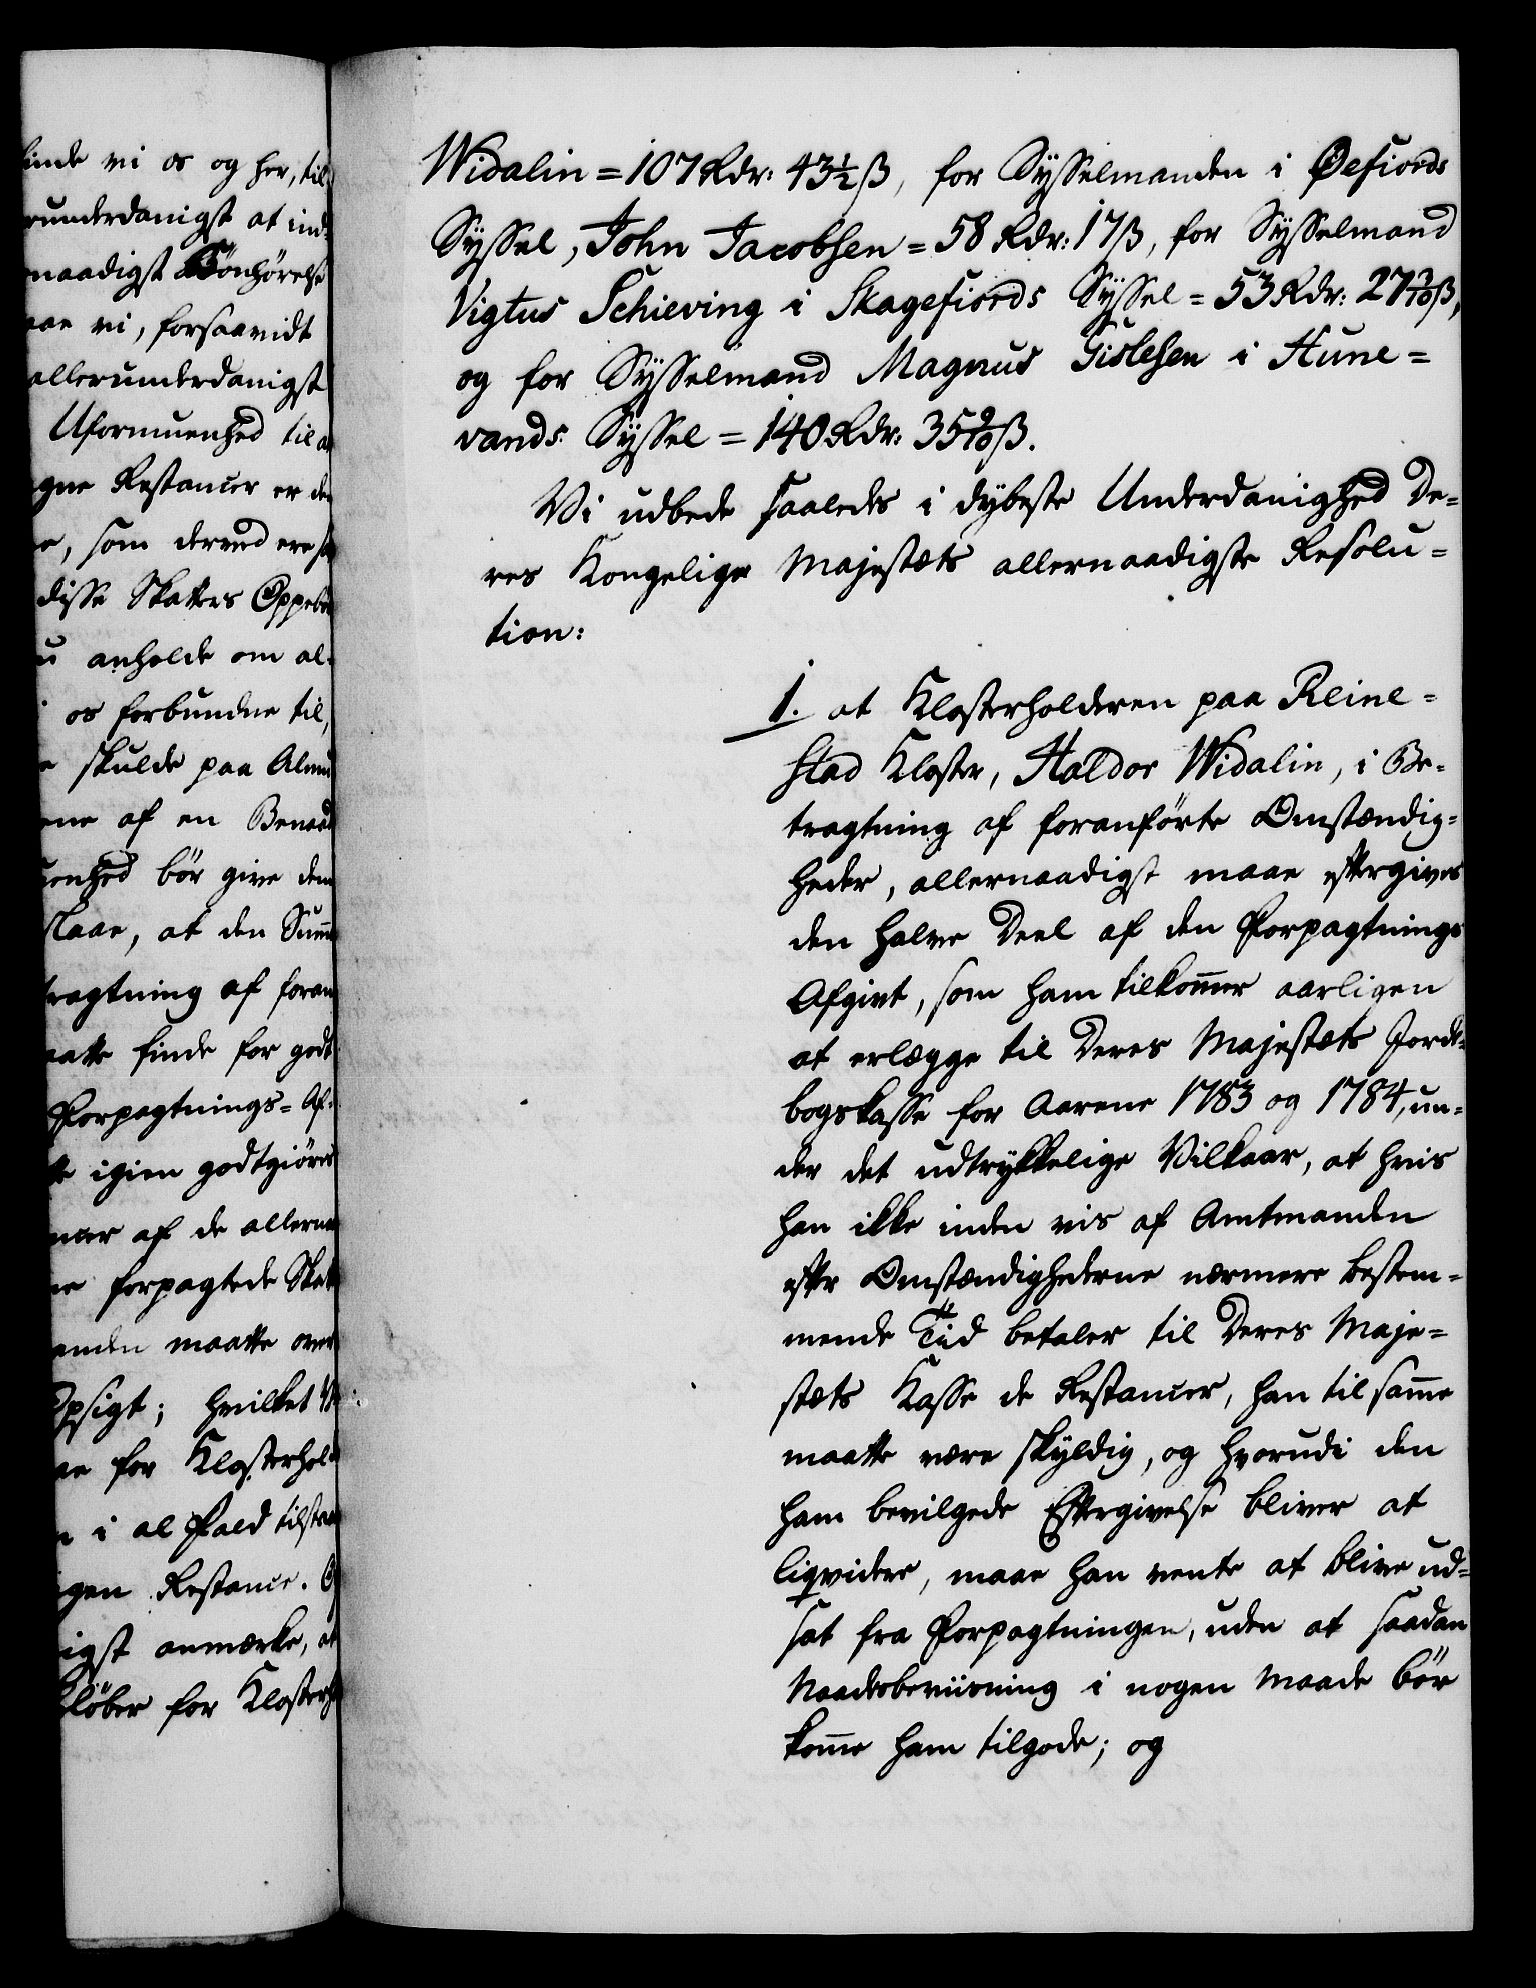 finde vi os og her, til
runderdanigst at ind=
naadigst Bönhörelse
vi, forsaavidt
allerunderdanigst
Uformuenhed til a
gne Restancer er de
, som derved ere
disse Skatters Oppeb
anholde om al=
os forbundne til,
skulde paa Almu
af en Benaad
enhed bör give dem
slaae, at den Sum̅
tragtning af foran
maatte finde for godt
Forpagtnings= Af=
igien godtgiöres
af de allerna
forpagtede Skatt
manden maatte over
Opsigt; hvilket V
for Klosterhold
i al Fald tilstra
gen Restance. O
igst anmærke, at
löber for Klosterh
Widalin = 107 Rdr: 43 1/2 ß, for Sysselmanden i Øefiords
Syssel, John Jacobsen = 58 Rdr: 17 ß, for Sysselmand
Vigtus Schieving i Skagefiords Syssel = 53 Rdr: 27 3/10 ß,
og for Sysselmand Magnus Gislesen i Hune=
vands Syssel = 140 Rdr: 35 9/10 ß.
Vi udbede saaledes i dybeste Underdanighed De=
res Kongelige Majestæts allernaadigste Resolu=
tion:
1. at Klosterholderen paa Reine=
stad Kloster, Haldor Widalin, i Be=
tragtning af foranförte Omstændig=
heder, allernaadigst maae eftergives
den halve Deel af den Forpagtnings
Afgivt, som ham tilkom̅er aarligen
at erlægge til Deres Majestæts Jorde=
bogskasse for Aarene 1783 og 1784, un=
der det udtrykkelige Vilkaar, at hvis
han ikke inden vis af Amtmanden
efter Omstændighederne nærmere bestem=
mende Tiid betaler til Deres Maje=
stæts Kasse de Restancer, han til sam̅e
maatte være skyldig, og hvorudi den
ham bevilgede Eftergivelse bliver at
liqvidere, maae han vente at blive ud=
sat fra Forpagtningen, uden at saadan
Naadesbeviisning i nogen Maade bör
kom̅e ham tilgode; og